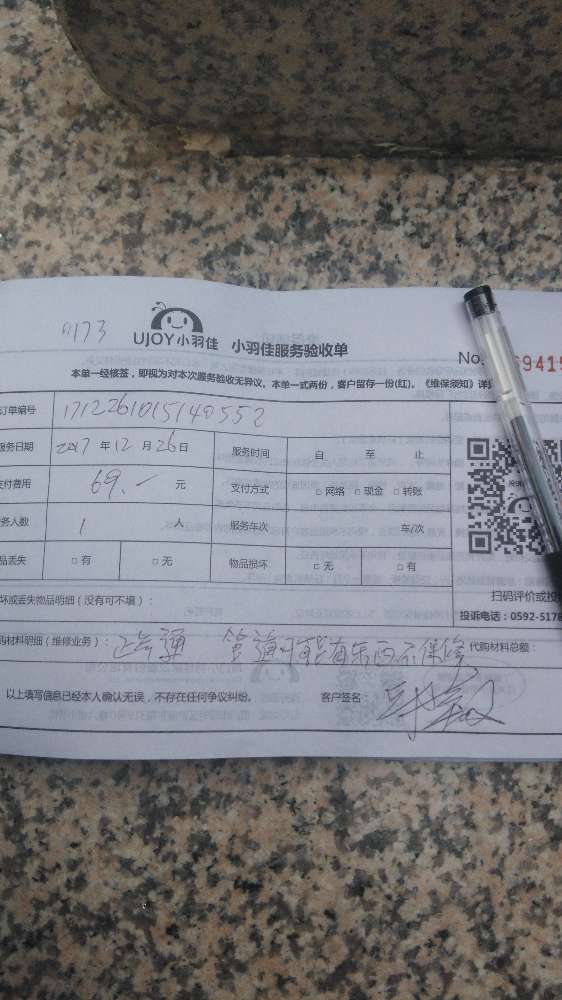 0173
UJOY小羽佳 小羽佳服务验收单
No. 9419
本单一经核签，即视为对本次服务验收无异议。本单一式两份，客户留存一份(红)。《维保须知》详
订单编号 1712261015140552
服务日期 2017 年 12 月 26 日 服务时间 自 至 止
支付费用 69.— 元 支付方式 □ 网络 □ 现金 □ 转账
务人数 1 人 服务车次 车/次
品丢失 □ 有 □ 无 物品损坏 □ 无 □ 有
扫码评价或投
坏或丢失物品明细（没有可不填）：
投诉电话：0592-5178
购材料明细（维修业务）： 管道可能有东西不保修 代购材料总额：
以上填写信息已经本人确认无误，不存在任何争议纠纷。 客户签名：